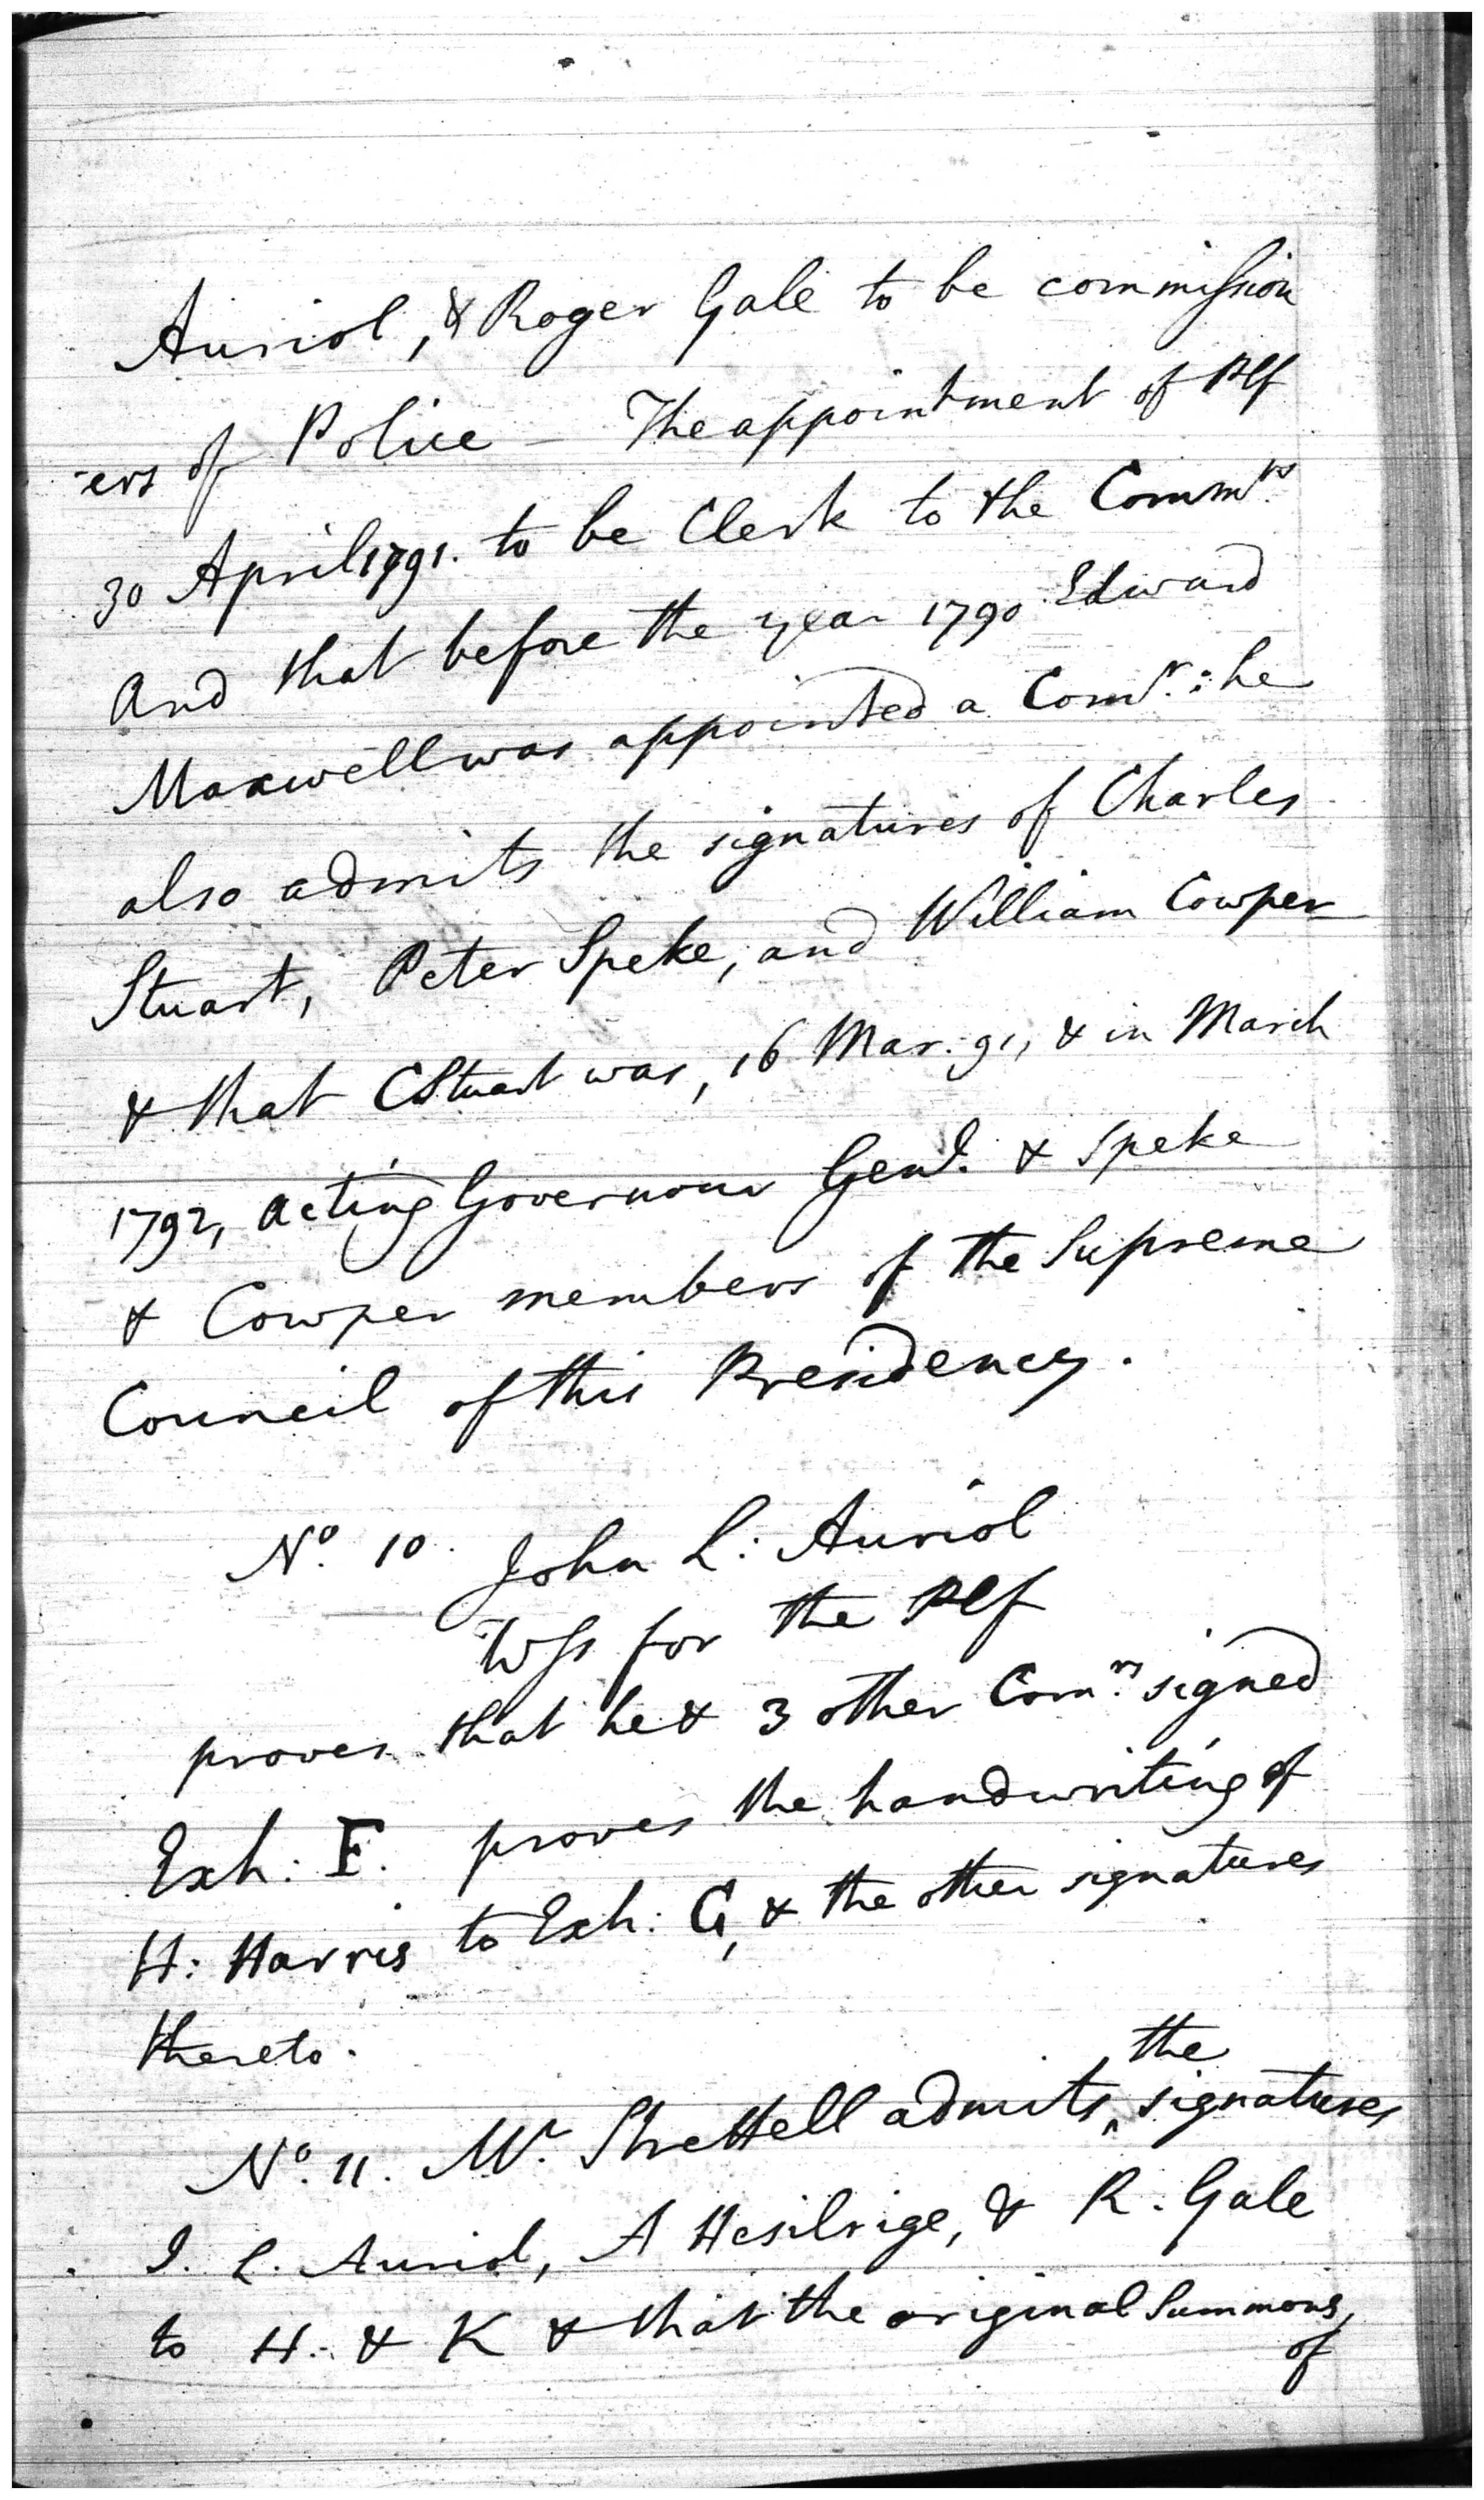 Auriol, & Roger Gale to be commission
-ers of Police – The appointment of Plf
30 April 1791. to be Clerk to the Commrs.
And that before the year 1790 Edward
Maxwell was appointed a Comr. : he
also admits the signatures of Charles
Stuart, Peter Speke, and William Cowper
& that CStuart was, 16 Mar: 91, & in March
1792, acting Governour Genl. & Speke
& Cowper members of the Supreme
Council of this Presidency.
No. 10. John L: Auriol
Wss for the Plf
proves that he & 3 other Comrs. signed
Exh: F. proves the handwriting of
H: Harris to Exh: G, & the other signatures
thereto.
No. 11. Mr. Shrettell admits the signatures
J. L. Auriol, A Hesilrige, & R. Gale
to H. & K & that the original Summons,
of